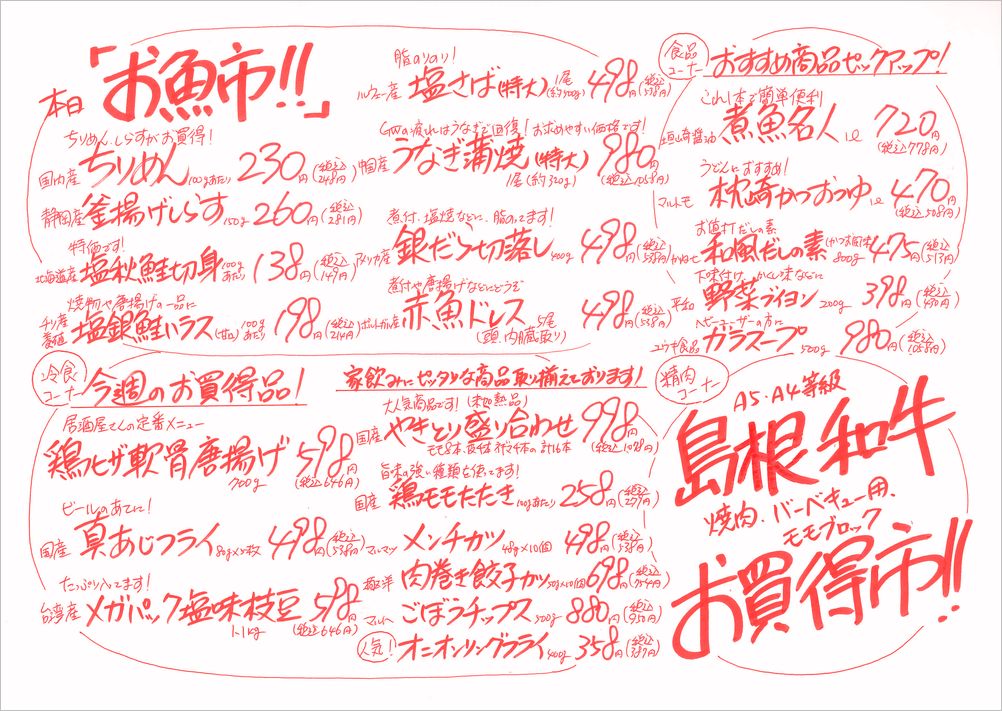 本日「お魚市!!」
ちりめん、しらすがお買得!
国内産 ちりめん 100gあたり 230円(税込248円)
静岡産 釜揚げしらす 150g 260円(税込281円)
特価です!
北海道産 塩秋鮭切身 100gあたり 138円(税込149円)
焼物や唐揚げの一品に
チリ産 養殖 塩銀鮭ハラス(甘口) 100gあたり 198円(税込214円)
脂のりのり!
ノルウェー産 塩さば(特大) 1尾(約500g) 498円(税込538円)
GWの疲れはうなぎで回復!お求めやすい価格です!
中国産 うなぎ蒲焼(特大) 980円
1尾(約320g) (税込1058円)
煮付、塩焼などに、脂のってます!
アメリカ産 銀だら切落し 400g 498円(税込538円)
煮付や唐揚げなどにどうぞ
ポルトガル産 赤魚ドレス 5尾(頭、内臓取り) 498円(税込538円)
食品コーナー おすすめ商品ピックアップ!
これ1本で簡単便利
煮魚名人 1ℓ 720円
(税込778円)
うどんにおすすめ!
マルトモ 枕崎かつおつゆ 1ℓ 470円
(税込508円)
お値打だしの素
かねせ 和風だしの素(かつお風味) 800g 475円(税込513円)
下味付け、かくし味などに
平和 野菜ブイヨン 200g 398円(税込430円)
ヘビーユーザーの方に
ユウキ食品 ガラスープ 500g 980円(税込1058円)
冷食コーナー 今週のお買得品!
家飲みにピッタリな商品取り揃えております!
居酒屋さんの定番メニュー
鶏ヒザ軟骨唐揚げ 598円
700g (税込646円)
ビールのあてに!
国産 真あじフライ 80g×5枚 498円(税込538円)
たっぷり入ってます!
台湾産 メガパック塩味枝豆 598円
1.1kg (税込646円)
大人気商品です!(未加熱品)
国産 やきとり盛り合わせ 998円
モモ8本、皮4本、ネギマ4本の計16本 (税込1078円)
旨味の強い種鶏を使ってます!
国産 鶏モモたたき 100gあたり 258円(税込279円)
マルマツ メンチカツ 48g×10個 498円(税込538円)
極洋 肉巻き餃子カツ 50g×10個 698円(税込754円)
マルハ ごぼうチップス 500g 880円(税込950円)
人気! オニオンリングフライ 400g 358円(税込387円)
精肉コーナー
A5・A4等級
島根和牛
焼肉、バーベキュー用、
モモブロック
お買得市!!